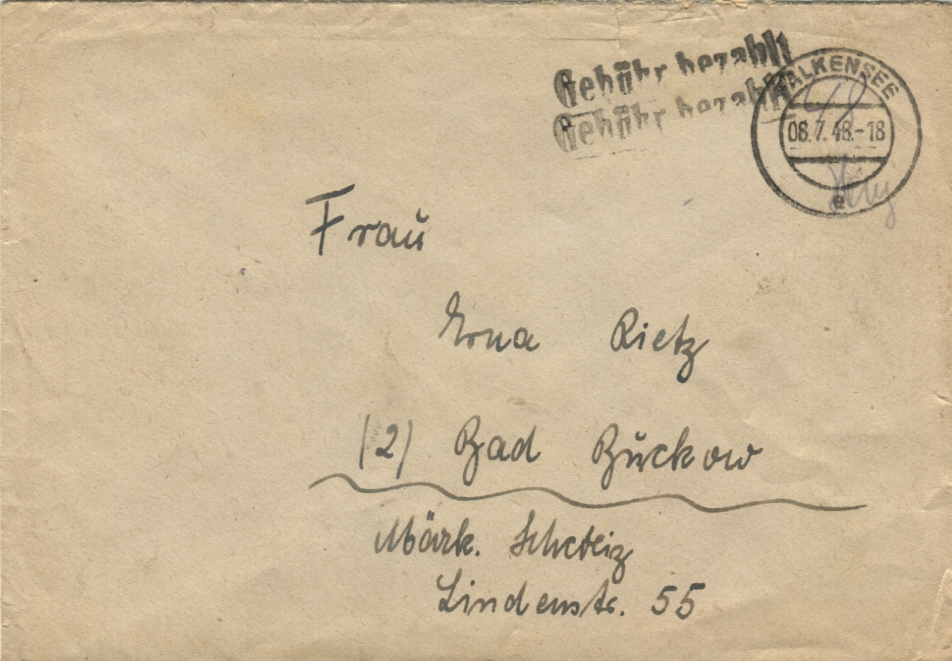 Gebühr bezahlt
Gebühr bezahlt
FALKENSEE
08.7.48.-18
e
48
Frau
Erna Rietz
(2) Bad Buckow
Märk. Schweiz
Lindenstr. 55